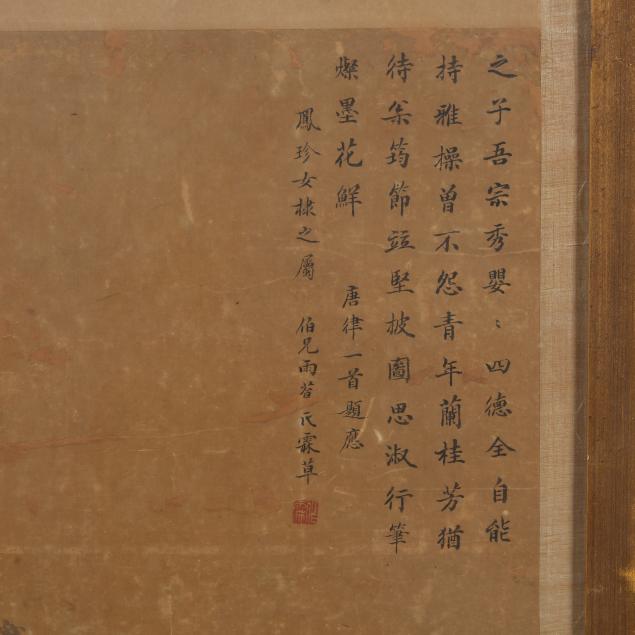 之子吾宗秀嬰〻四德全自能
持雅操曾不怨青年蘭桂芳猶
待筠節竝堅披圖思淑行筆
燦墨花鮮 唐律一首題應
鳳珍女棣之屬 伯兄雨苕氏霖草